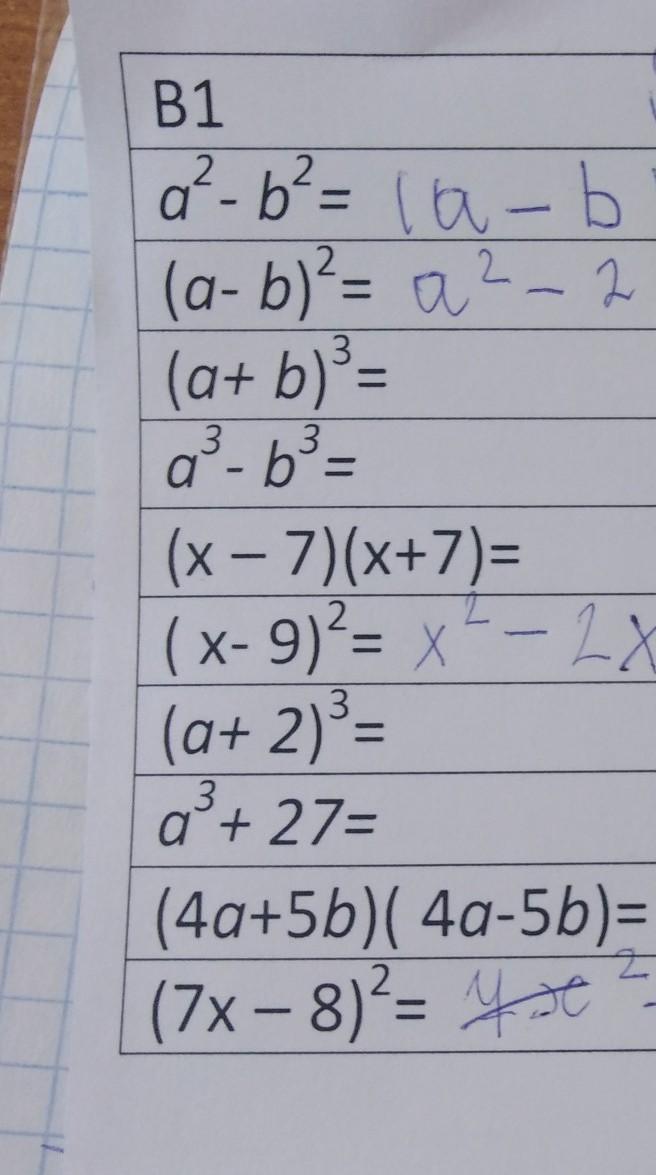 B1
a²- b²= (a - b
(a- b)²= a² - 2
(a+ b)³=
a³- b³=
(x – 7)(x+7)=
( x- 9)²= x² - 2x
(a+ 2)³=
a³+ 27=
(4a+5b)( 4a-5b)=
(7x – 8)²=